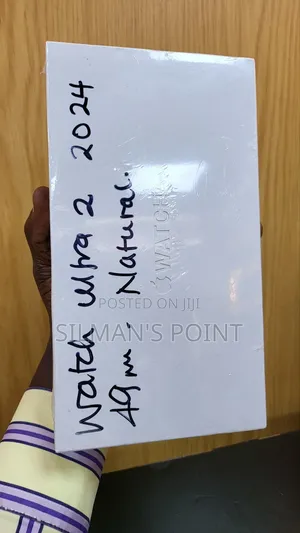 Watch Ultra 2 2024
49mm. Natural.
WATCH
POSTED ON JIJI
SILMAN'S POINT